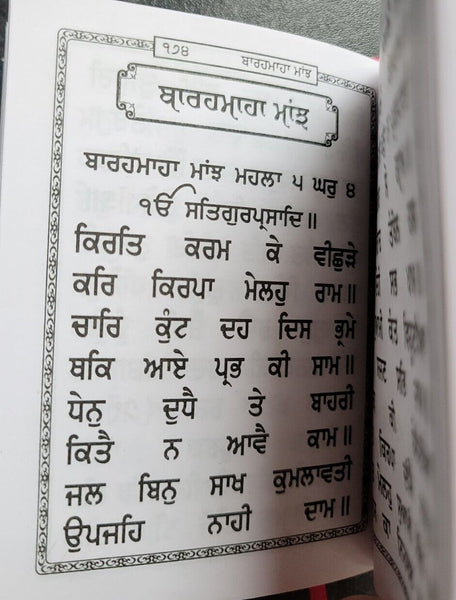 ੧੭੪ ਬਾਰਹਮਾਹਾ ਮਾਂਝ
ਬਾਰਹਮਾਹਾ ਮਾਂਝ
ਬਾਰਹਮਾਹਾ ਮਾਂਝ ਮਹਲਾ ੫ ਘਰੁ ੪
ੴ ਸਤਿਗੁਰਪ੍ਰਸਾਦਿ॥
ਕਿਰਤਿ ਕਰਮ ਕੇ ਵੀਛੁੜੇ
ਕਰਿ ਕਿਰਪਾ ਮੇਲਹੁ ਰਾਮ॥
ਚਾਰਿ ਕੁੰਟ ਦਹ ਦਿਸ ਭ੍ਰਮੇ
ਥਕਿ ਆਏ ਪ੍ਰਭ ਕੀ ਸਾਮ॥
ਧੇਨੁ ਦੁਧੈ ਤੇ ਬਾਹਰੀ
ਕਿਤੈ ਨ ਆਵੈ ਕਾਮ॥
ਜਲ ਬਿਨੁ ਸਾਖ ਕੁਮਲਾਵਤੀ
ਉਪਜਹਿ ਨਾਹੀ ਦਾਮ॥